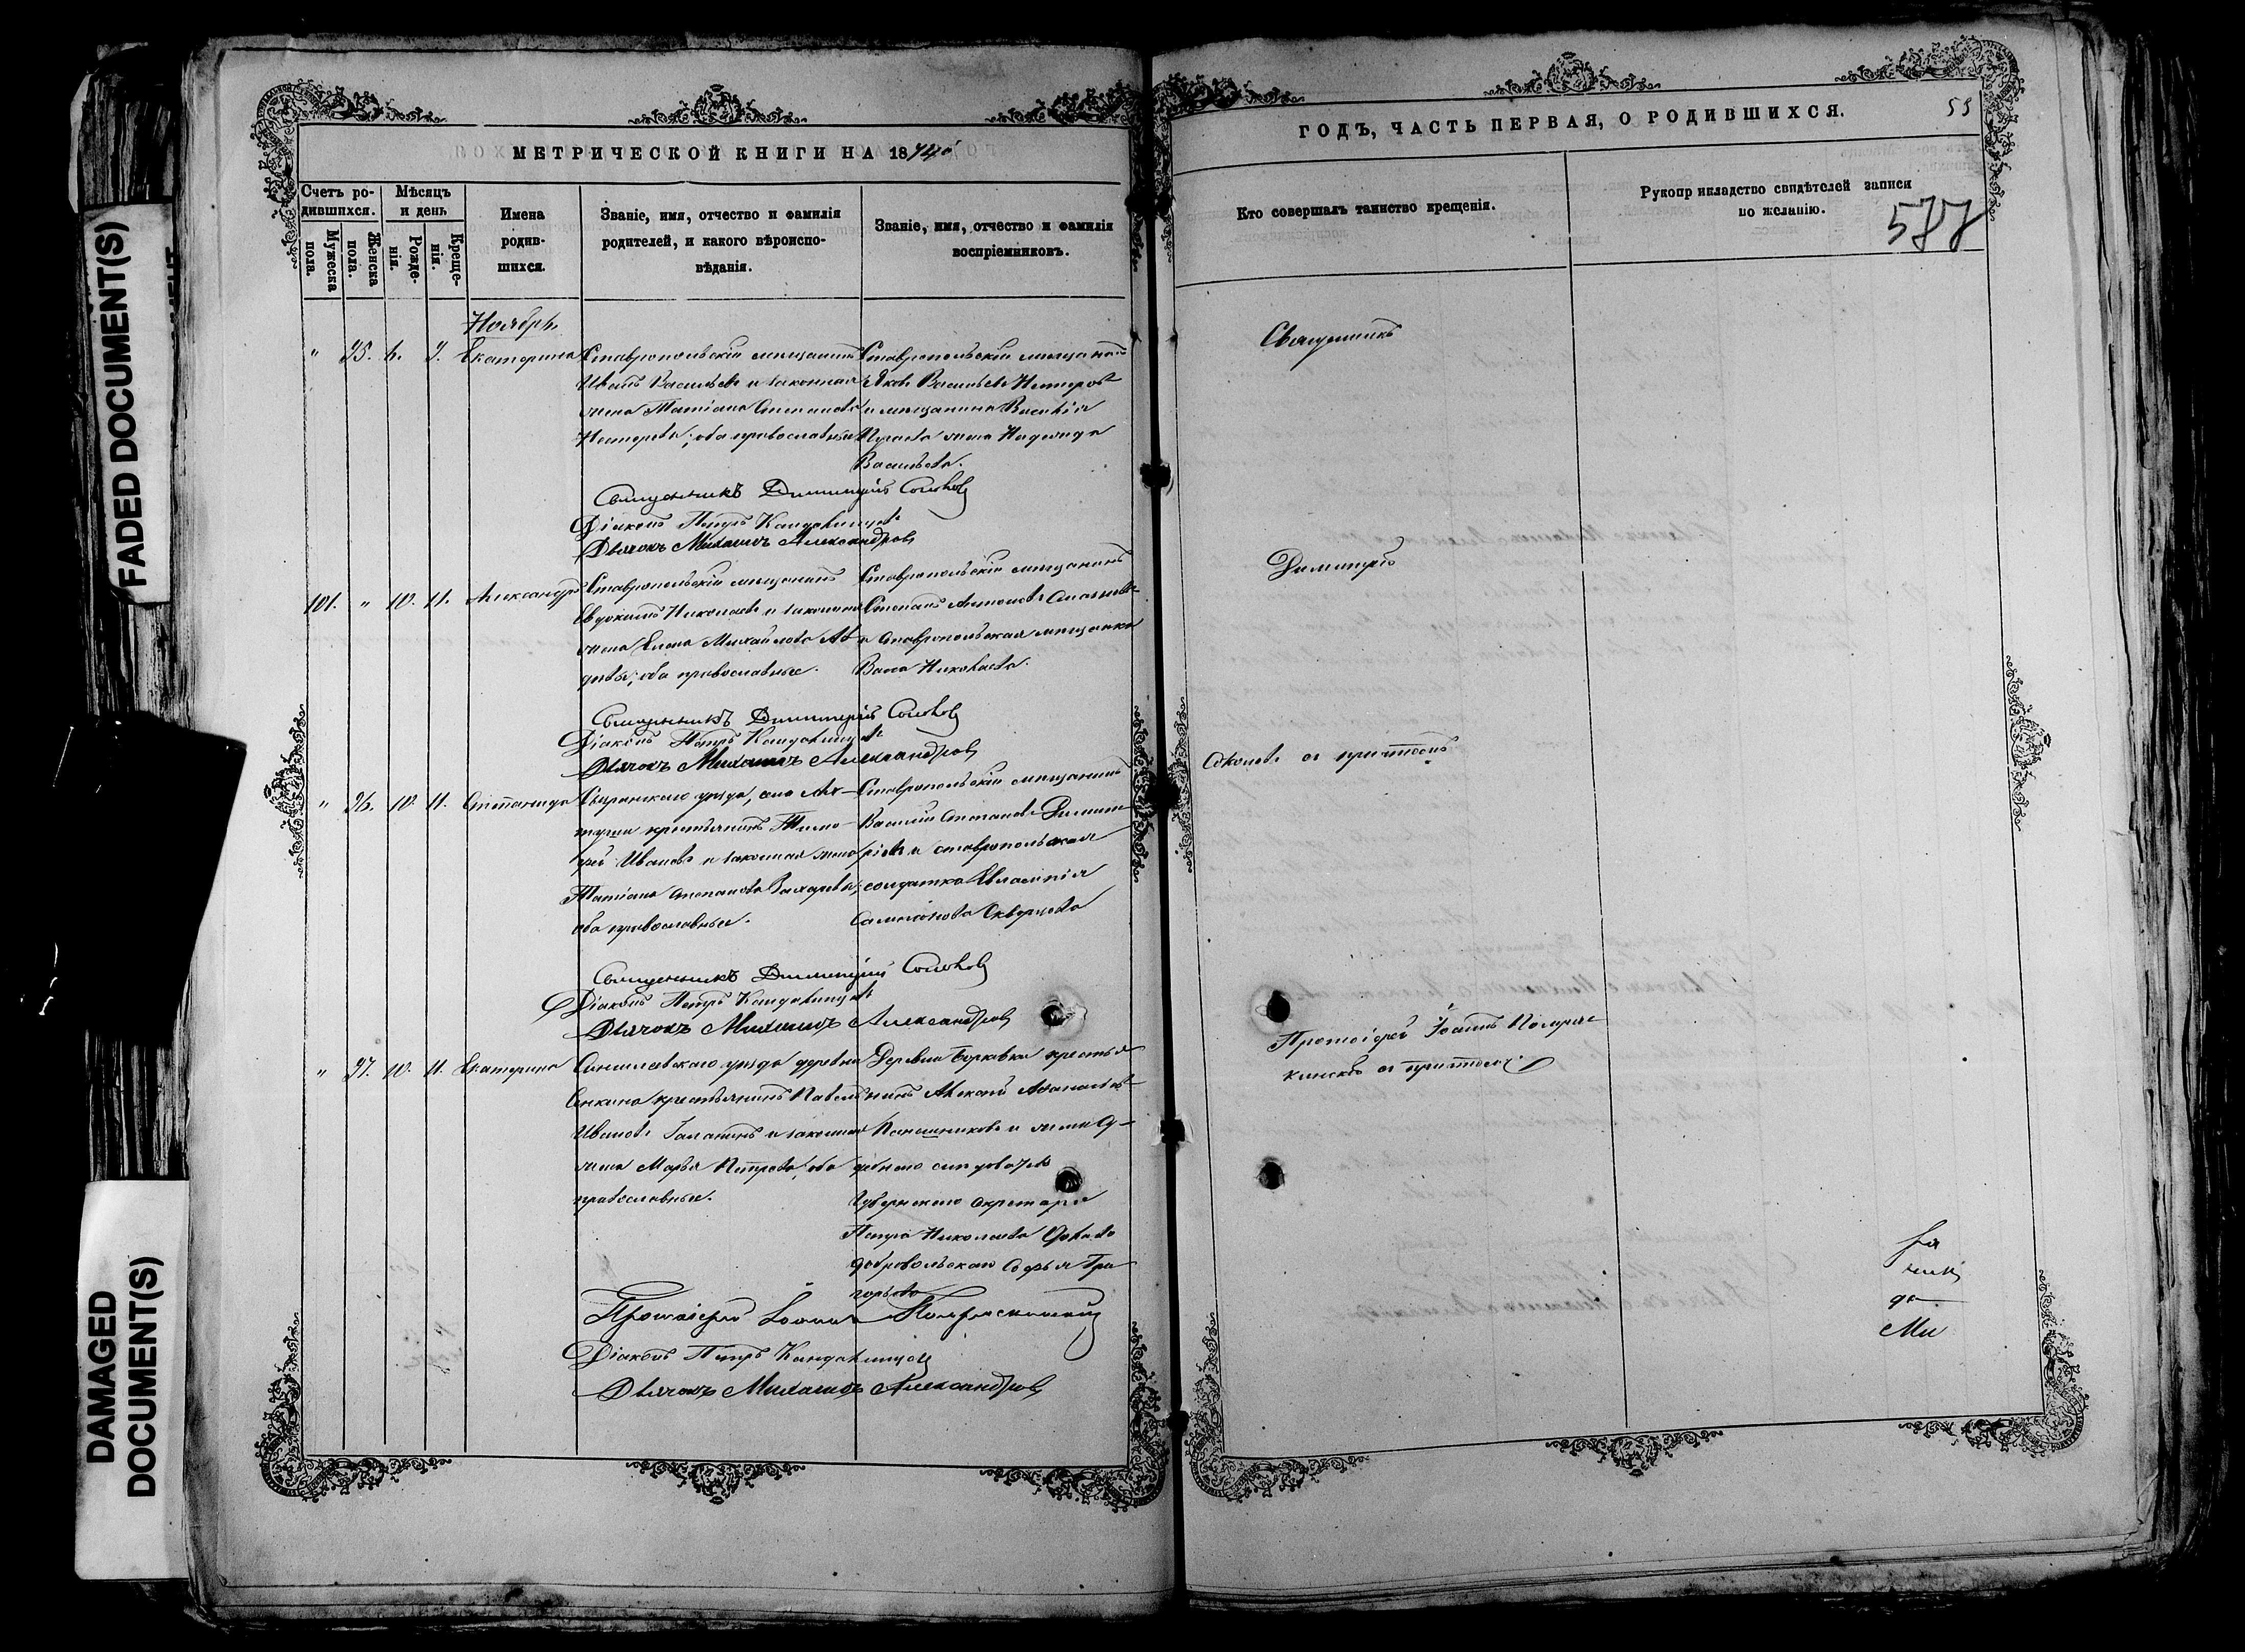 FADED DOCUMENT(S)
DAMAGED
DOCUMENT(S)
МЕТРИЧЕСКОЙ КНИГИ НА 1874й
Счетъ ро-
дившихся.
Мужеска
пола.
Женска
пола.
Мѣсяцъ
и день
Рожде-
нія.
Креще-
нія.
Имена
родив-
шихся.
Званіе, имя, отчество и фамилія
родителей, и какого вѣроиспо-
вѣданія.
Званіе, имя, отчество и фамилія
воспріемниковъ.
Ноябрь
" 95. 6. 9. Екатерина
Ставропольскій мѣщанинъ
Иванъ Васильевъ и законная
жена Татіана Степанова
Нестеровы; оба православные
Ставропольскій мѣщанинъ
Яковъ Васильевъ Нестеровъ
и мѣщанина Василія
жена Надежда
Васильева.
Священникъ Димитрій Соколовъ
Діаконъ Петръ
Дьячокъ Михаилъ Александровъ
101. " 10. 11. Александръ
Ставропольскій мѣщанинъ
Евдокимъ Николаевъ и законная
жена Елена Михайлова Ав-
дѣевы; оба православные.
Ставропольскій мѣщанинъ
Степанъ Антоновъ
и Ставропольская мѣщанка
Васса Николаева.
Священникъ Димитрій Соколовъ
Діаконъ Петръ
Дьячокъ Михаилъ Александровъ
" 96. 10. 11. Степанида
Сызранскаго уѣзда, села Ах-
туши крестьянинъ Тимо-
фей Ивановъ и законная жена
Татіана Степанова Захаровы;
оба православные.
Ставропольскій мѣщанинъ
Василій Степановъ Димит-
ріевъ и ставропольская
солдатка Евлампія
Самсонова Скворцова
Священникъ Димитрій Соколовъ
Діаконъ Петръ
Дьячокъ Михаилъ Александровъ
" 97. 10. 11. Екатерина
Сенгилеевскаго уѣзда деревни
Сенкина крестьянинъ Павелъ
Ивановъ Галанинъ и законная
жена Марья Петрова; оба
православные.
Деревни Борковки крестья-
нинъ
и жена Су-
дебнаго слѣдователя
Губернскаго секретаря
Петра Николаева
Добровольскаго Софья Гри-
горьева
Протоіерей Іоаннъ
Діаконъ Петръ
Дьячокъ Михаилъ Александровъ
ГОДЪ, ЧАСТЬ ПЕРВАЯ, О РОДИВШИХСЯ.
53
Кто совершалъ таинство крещенія.
Рукоприкладство свидѣтелей записи
по желанію.
577
Священникъ
Димитрій
Соколовъ съ причтомъ
Протоіерей Іоаннъ
съ причтомъ